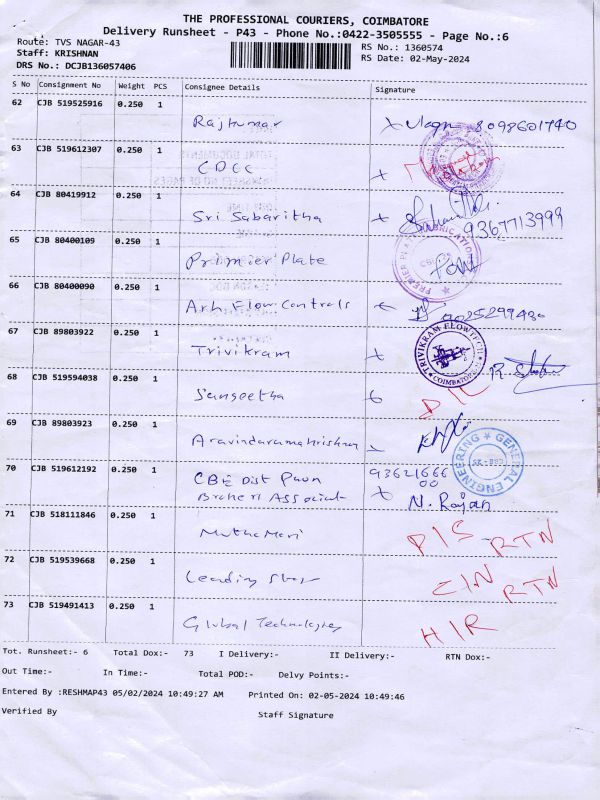 THE PROFESSIONAL COURIERS, COIMBATORE
Delivery Runsheet - P43 - Phone No.:0422-3505555 - Page No.:6
Route: TVS NAGAR-43
Staff: KRISHNAN
DRS No.: DCJB136057406
RS No.: 1360574
RS Date: 02-May-2024
S No Consignment No Weight PCS Consignee Details Signature
62 CJB 519525916 0.250 1
Rajkumar 8098601740
63 CJB 519612307 0.250 1
CDCC
64 CJB 80419912 0.250 1
Sri Sabaritha 9367713999
65 CJB 80400109 0.250 1
Primier Plate
PREMIER PLATE FABRICATION
66 CJB 80400090 0.250 1
Arh Flow Controls
67 CJB 89803922 0.250 1
Trivikram
TRIVIKRAM FLOWTECH
COIMBATORE
68 CJB 519594038 0.250 1
Sangeetha
69 CJB 89803923 0.250 1
Aravindaramakrishnan
GENERAL ENGINEERING
70 CJB 519612192 0.250 1
CBE Dist Pawn 93621666
00
Brokers Associat N. Rajan
71 CJB 518111846 0.250 1
Muthu Mari DIS RTN
72 CJB 519539668 0.250 1
Leading Star CIN RTN
73 CJB 519491413 0.250 1
Global Technologies HIR
Tot. Runsheet:- 6 Total Dox:- 73 I Delivery:- II Delivery:- RTN Dox:-
Out Time:- In Time:- Total POD:- Delvy Points:-
Entered By :RESHMAP43 05/02/2024 10:49:27 AM Printed On: 02-05-2024 10:49:46
Verified By Staff Signature